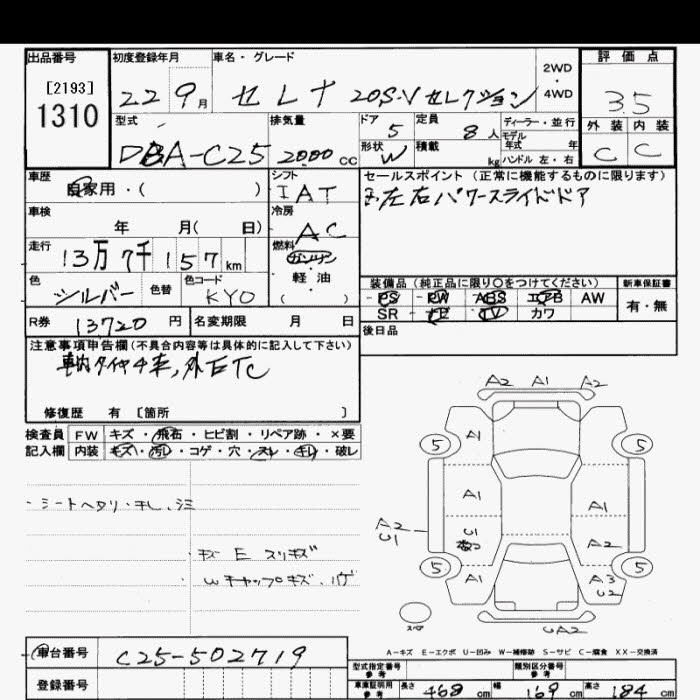 出品番号 初度登録年月 車名・グレード 2WD・4WD 評価点
[2193]
1310
22 9月 セレナ 20S-Vセレクション 3.5
型式 排気量 ドア 定員 ディーラー・並行 外装 内装
DBA-C25 2000 cc 5 8人 モデル年式 年 C C
形状 W 積載 kg ハンドル 左・右
車歴 シフト セールスポイント (正常に機能するものに限ります)
自家用・( ) IAT 左右パワースライドドア
車検 冷房
年 月( 日) AC
走行 燃料
13万7千157km ガソリン
軽・油
( )
色 色替 色コード 装備品(純正品に限り○をつけてください) 新車保証書
シルバー KY0 PS PW ABS エアB AW 有・無
SR ナビ TV カワ
R券 13720円 名変期限 月 日 後日品
注意事項申告欄(不具合内容等は具体的に記入して下さい)
車内タイヤ4本,外右Tc
修復歴 有 [箇所 ]
検査員 FW キズ・飛石・ヒビ割・リペア跡・×要
記入欄 内装 キズ・汚レ・コゲ・穴・スレ・キレ・破レ
・シートヘタリ・キレ,シミ
・キズ E スリキズ
・Wキャップキズ,ハゲ
A2 A1 A2
5 A1 5
A1 A1
A2
U1
U1 A2
5 A1 A3 5
U2
スペア UA2
A-キズ E-エクボ U-凹み W-補修跡 S-サビ C-腐食 XX-交換済
車台番号 C25-502719
登録番号
型式指定番号 参考 類別区分番号 参考
車庫証明用 参考 長さ 468 cm 幅 169 cm 高さ 184 cm